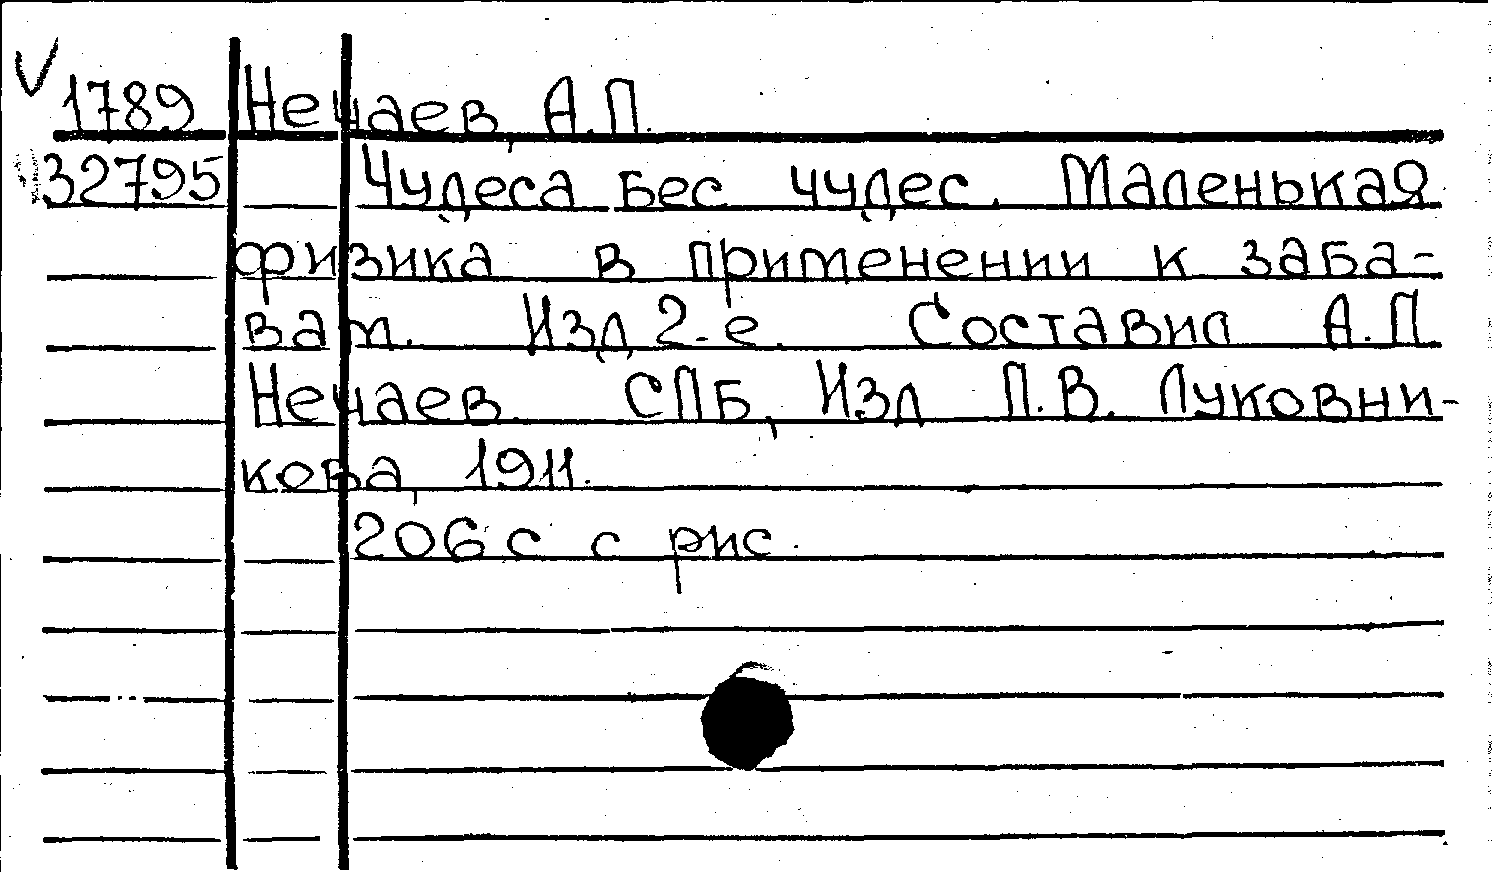 V 1789 Нечаев, А.П.
32795 Чудеса бес чудес. Маленькая
физика в применении к заба-
вам. Изд 2-е. Составил А.П.
Нечаев. СПБ, Изд П.В. Луковни-
кова, 1911.
206 с с рис.